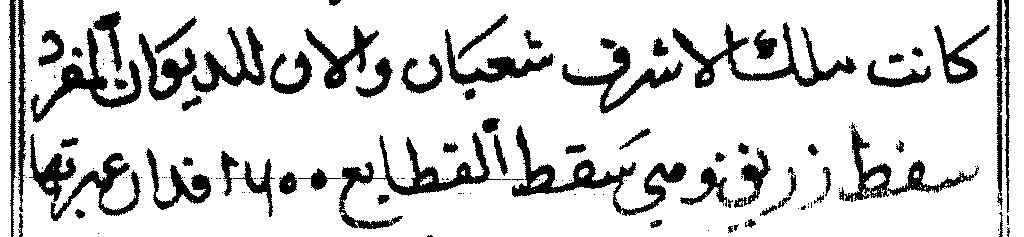 كانت ملك الاشرف شعبان والان للديوان المفرد
سفط زريق وهي سقط القطايع ١٦٠٠ فدان عبرتها